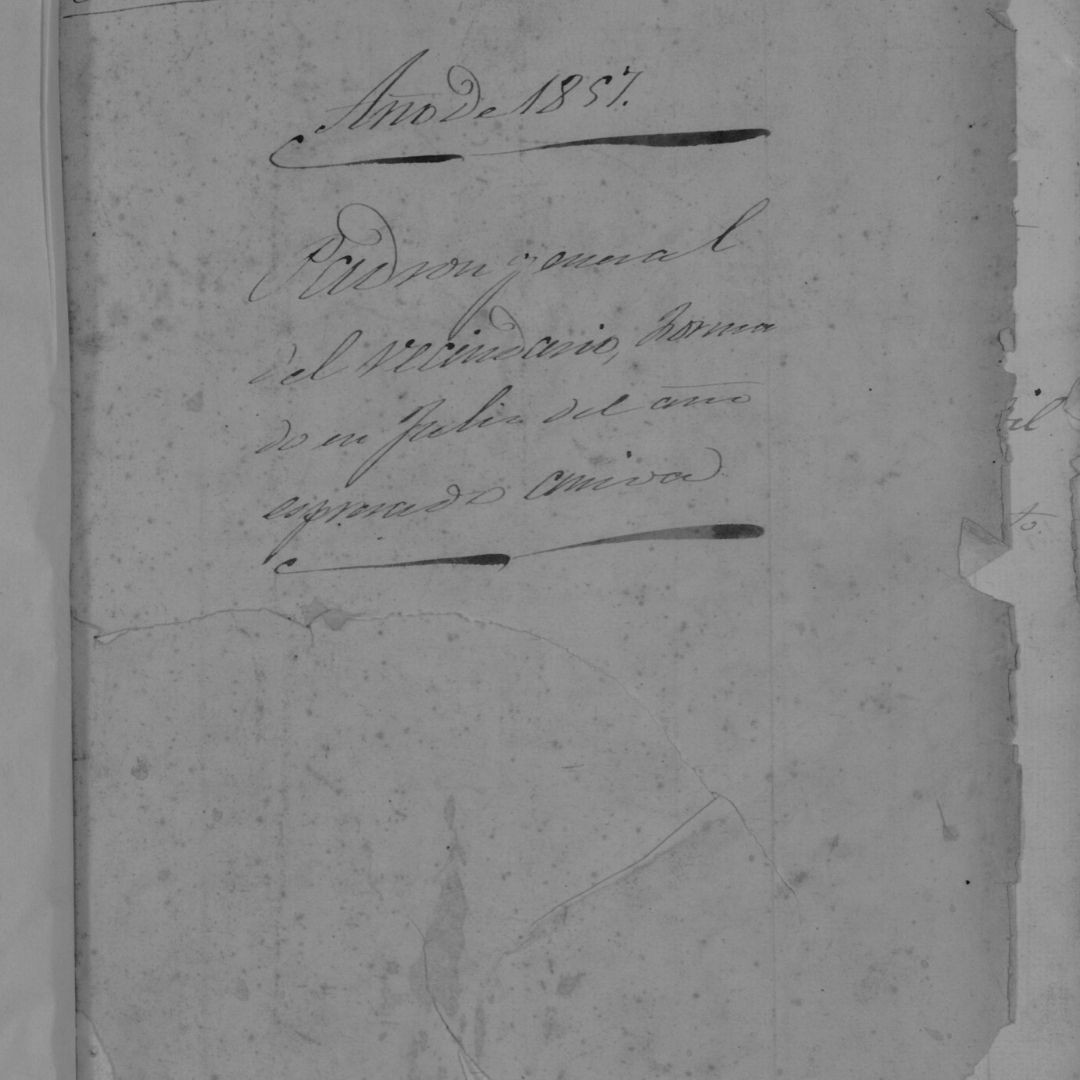 Año de 1857.
Padron general
del vecindario, forma
do en Julio del año
espresado arriva
il
to.